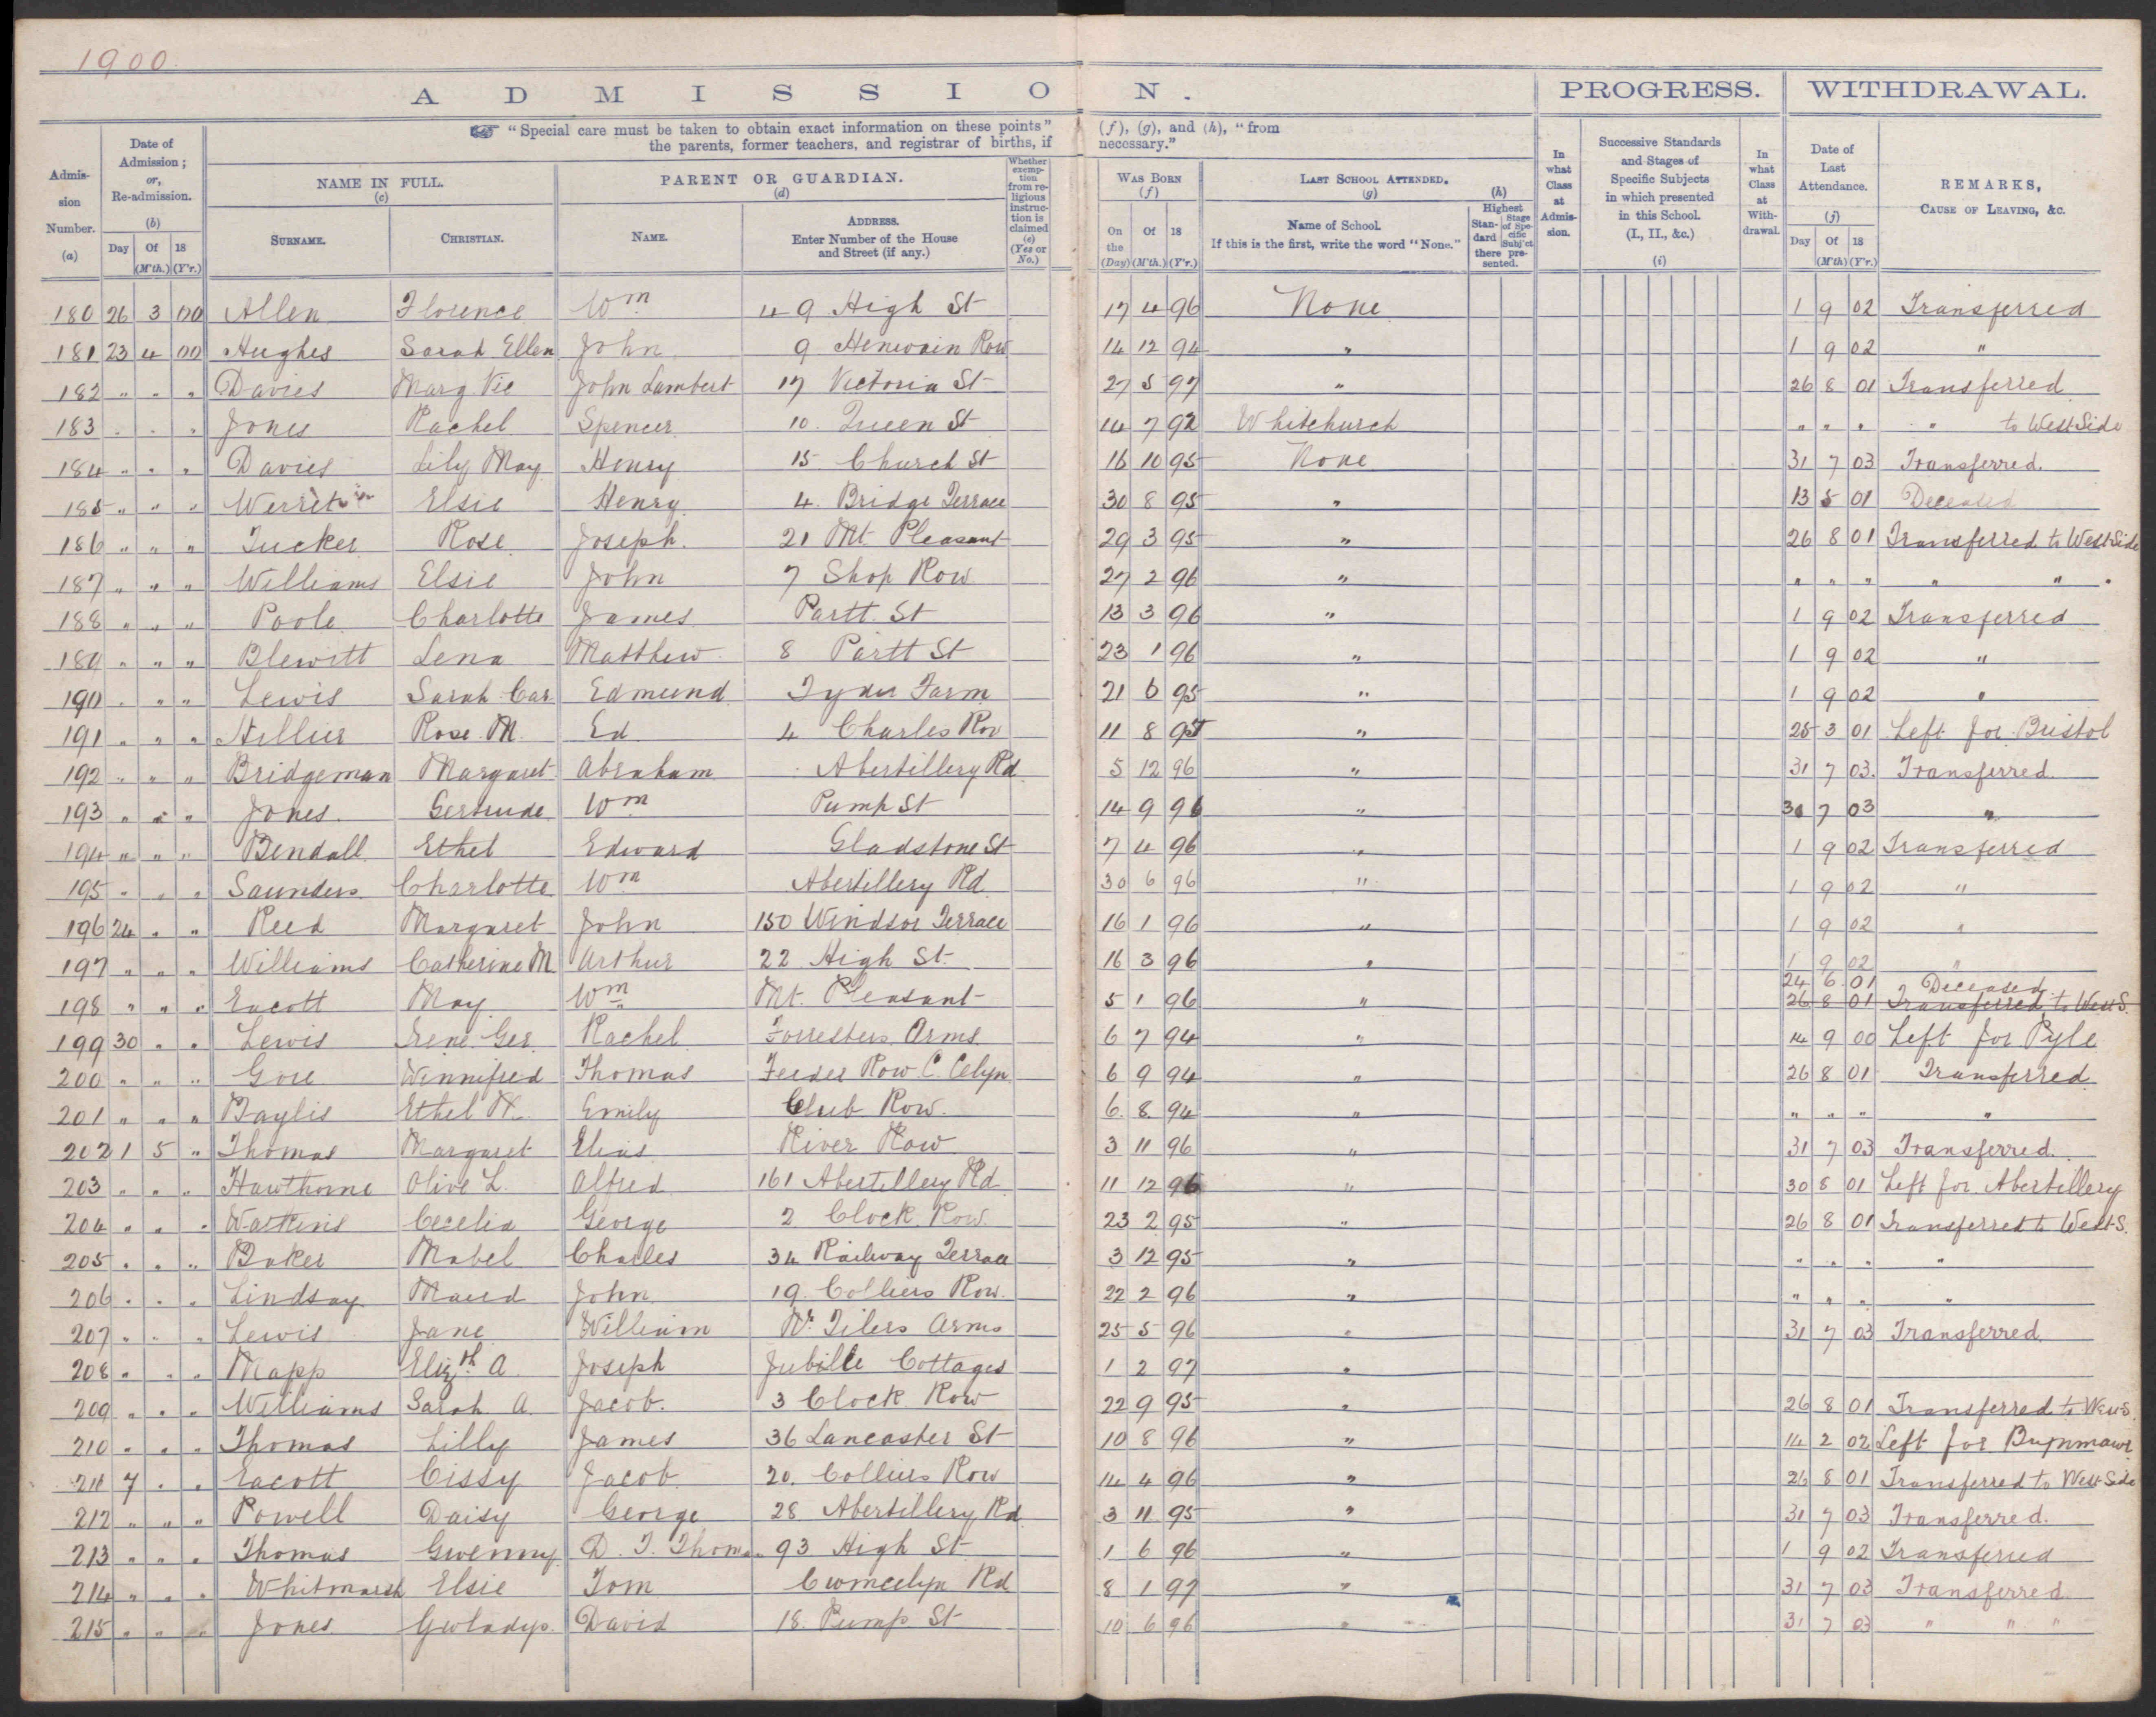 1900
ADMISSION.
PROGRESS.
WITHDRAWAL.
☞ "Special care must be taken to obtain exact information on these points" (f), (g), and (h), "from
the parents, former teachers, and registrar of births, if necessary."
Admission Number. (a)
Date of Admission; or, Re-admission. (b)
Day Of (M'th.) 18 (Y'r.)
NAME IN FULL. (c)
SURNAME. CHRISTIAN.
PARENT OR GUARDIAN. (d)
NAME.
ADDRESS. Enter Number of the House and Street (if any.)
Whether exemption from religious instruction is claimed (e) (Yes or No.)
WAS BORN (f)
On the (Day) Of (M'th.) 18 (Y'r.)
LAST SCHOOL ATTENDED. (g)
Name of School. If this is the first, write the word "None."
(h) Highest Standard Stage of Specific Subj'ct there presented.
In what Class at Admission.
Successive Standards and Stages of Specific Subjects in which presented in this School. (I., II., &c.) (i)
In what Class at Withdrawal.
Date of Last Attendance. (j)
Day Of (M'th) 18 (Y'r.)
REMARKS, CAUSE OF LEAVING, &c.
180 26 3 00 Allen Florence Wm 49 High St 17 4 96 None 1 9 02 Transferred
181 23 4 00 Hughes Sarah Ellen John 9 Henwain Row 14 12 94 " 1 9 02 "
182 " " " Davies Marg Vic John Lambert 17 Victoria St 27 5 97 " 26 8 01 Transferred
183 " " " Jones Rachel Spencer 10. Queen St 14 7 92 Whitchurch " " " " to West Side
184 " " " Davies Lily May Henry 15 Church St 16 10 95 None 31 7 03 Transferred.
185 " " " Elsie Henry 4. Bridge Terrace 30 8 95 " 13 5 01 Deceased
186 " " " Tucker Rose Joseph. 21 Mt Pleasant 29 3 95 " 26 8 01 Transferred to West Side
187 " " " Williams Elsie John 7 Shop Row 27 2 96 " " " " " " "
188 " " " Poole Charlotte James Partt. St 13 3 96 " 1 9 02 Transferred
189 " " " Blewitt Lena Matthew 8 Partt St 23 1 96 " 1 9 02 "
190 " " " Lewis Sarah Car Edmund Farm 21 6 95 " 1 9 02 "
191 " " " Hillier Rose M. Ed 4 Charles Row 11 8 95 " 25 3 01 Left for Bristol
192 " " " Bridgeman Margaret Abraham Abertillery Rd 5 12 96 " 31 7 03. Transferred
193 " " " Jones. Gertrude Wm Pump St 14 9 96 " 7 03 "
194 " " " Bendall Ethel Edward Gladstone St 7 4 96 " 1 9 02 Transferred
195 " " " Saunders Charlotte Wm Abertillery Rd 30 6 96 " 1 9 02 "
196 24 " " Reed Margaret John 150 Windsor Terrace 16 1 96 " 1 9 02 "
197 " " " Williams Catherine M Arthur 22 High St. 16 3 96 " 1 9 02 "
24 6 01 Deceased
198 " " " Eacott May Wm Mt. Pleasant 5 1 96 " 26 8 01 Transferred to West S.
199 30 " " Lewis Irene Ger. Rachel Forresters Arms. 6 7 94 " 14 9 00 Left for Pyle
200 " " " Gore Winnifred Thomas Feeder Row C. Celyn 6 9 94 " 26 8 01 Transferred.
201 " " " Baylis Ethel Emily Club Row. 6 8 94 " " " " "
202 1 5 " Thomas Margaret Elias River Row 3 11 96 " 31 7 03 Transferred.
203 " " " Hawthorne Olive L. Alfred 161 Abertillery Rd 11 12 96 " 30 8 01 Left for Abertillery
204 " " " Watkins Cecelia George 2 Clock Row 23 2 95 " 26 8 01 Transferred to West S.
205 " " " Baker Mabel Charles 34 Railway Terrace 3 12 95 " " " " "
206 " " " Lindsay Maud John 19. Colliers Row. 22 2 96 " " " " "
207 " " " Lewis Jane William Tilers Arms 25 5 96 " 31 7 03 Transferred.
208 " " " Mapp Elizth. A Joseph Jubille Cottages 1 2 97 "
209 " " " Williams Sarah A. Jacob. 3 Clock Row 22 9 95 " 26 8 01 Transferred to West S.
210 " " " Thomas Lilly James 36 Lancaster St 10 8 96 " 14 2 02 Left for Brynmawr
211 7 " " Eacott Cissy Jacob 20. Colliers Row 14 4 96 " 26 8 01 Transferred to West Side
212 " " " Powell Daisy George 28 Abertillery Rd 3 11 95 " 31 7 03 Transferred.
213 " " " Thomas Gwenny D. J. Thomas 93 High St 1 6 96 " 1 9 02 Transferred
214 " " " Whitmarsh Elsie Tom Cwmcelyn Rd 8 1 97 " 31 7 03 Transferred
215 " " " Jones Gwladys. David 18. Pump St 10 6 96 " 31 7 03 " " "